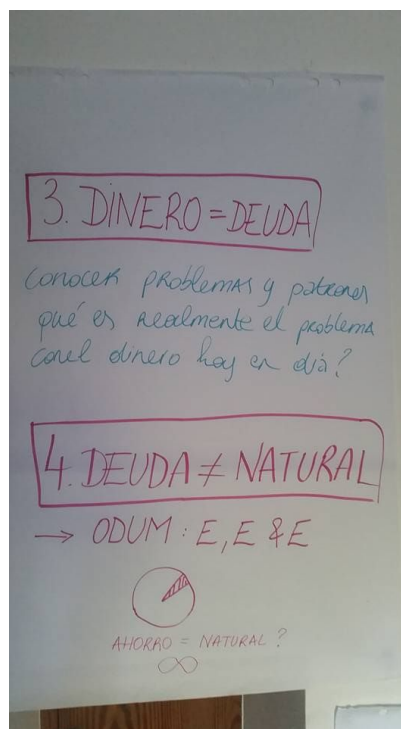 3. DINERO = DEUDA
CONOCER PROBLEMAS y patrones
qué es realmente el problema
con el dinero hoy en día?
4. DEUDA ≠ NATURAL
→ ODUM: E, E & E
AHORRO = NATURAL ?
∞